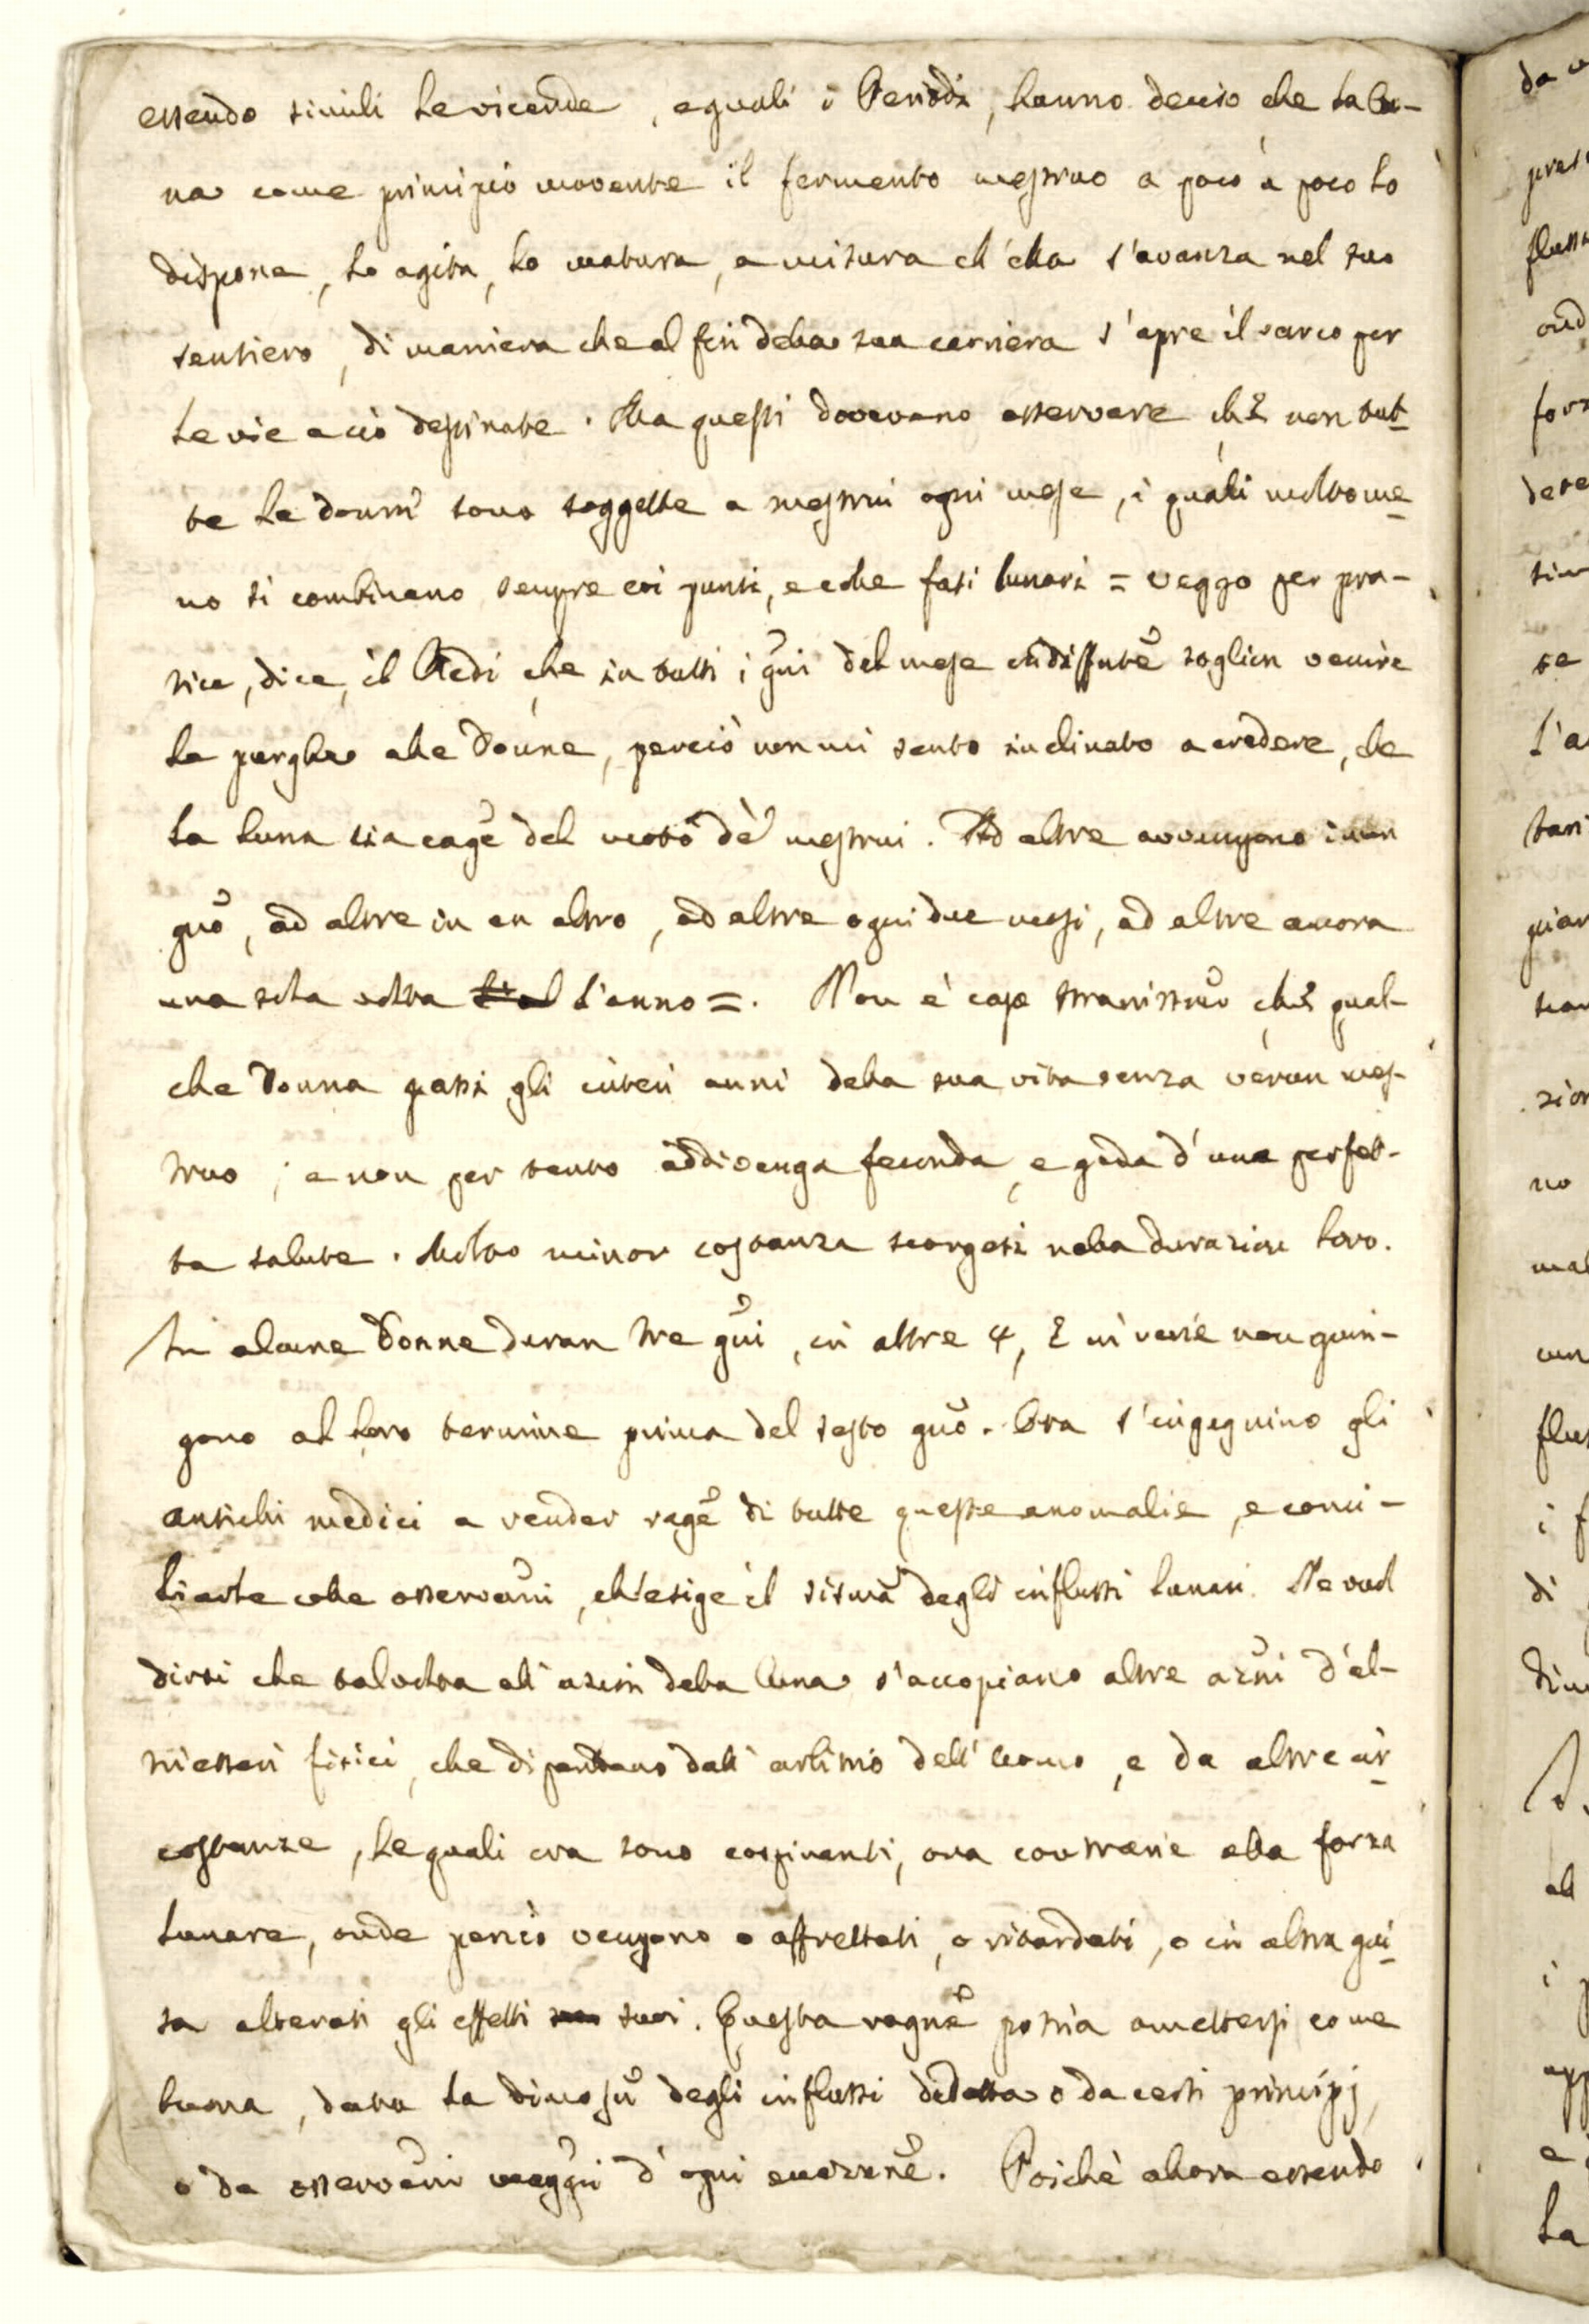 essendo simili le vicende, eguali i Periodi, hanno deciso che la Lu-
na come principio movente il fermento mestruo a poco a poco lo
dispone, lo agita, lo matura, a misura ch'ella s'avanza nel suo
sentiero, di maniera che al fin della sua carriera s'apre il varco per
le vie a ciò destinate. Ma questi dovevano osservare che non tut-
te le donne sono soggette a mestrui ogni mese, i quali molto me-
no si combinano sempre coi punti, e colle fasi lunari = veggo per pra-
tica, dice il Redi, che in tutti i gni del mese indiffute soglion venire
le purghe alle donne, perciò non mi sento inclinato a credere, che
la luna sia cage del moto de' mestrui. Ad altre avvengono in un
gno, ad altre in un altro, ad altre ogni due mesi, ad altre ancora
una sola volta l'anno =. Non è caso stranissmo che qual-
che donna passi gli interi anni della sua vita senza verun mes-
truo; e non per tanto addivenga feconda, e goda d'una perfet-
ta salute. Molto minor costanza scorgesi nella durazion loro.
In alcune donne duran tre gni, in altre 4, e in varie non giun-
gono al loro termine prima del sesto gno. Ora s'ingegnino gli
antichi medici a render rage di tutte queste anomalie, e conci-
liarle colle osservani, ch'esige il sistma degli influssi lunari. Ne val
dirsi che talvolta all'azion della Luna s'accopiano altre azni d'al-
tri esseri fisici, che dipendano dall'arbitrio dell'uomo, e da altre cir-
costanze, le quali ora sono cospiranti, ora contrarie alla forza
lunare, onde perciò vengono o affrettati, o ritardati, o in altra gui-
sa alterati gli effetti suoi. Questa ragne potria ammettersi come
buona, data la dimosne degli influssi dedotta o da certi principj,
o da osservani maggri d'ogni eccezzne. Poichè allora essendo